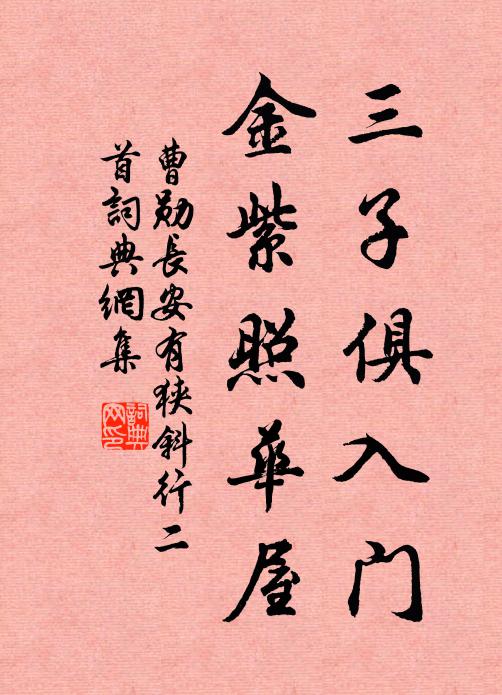 三子俱入门
金紫照華屋
曹勛長安有狹斜行二
首詞典網集
詞典网印